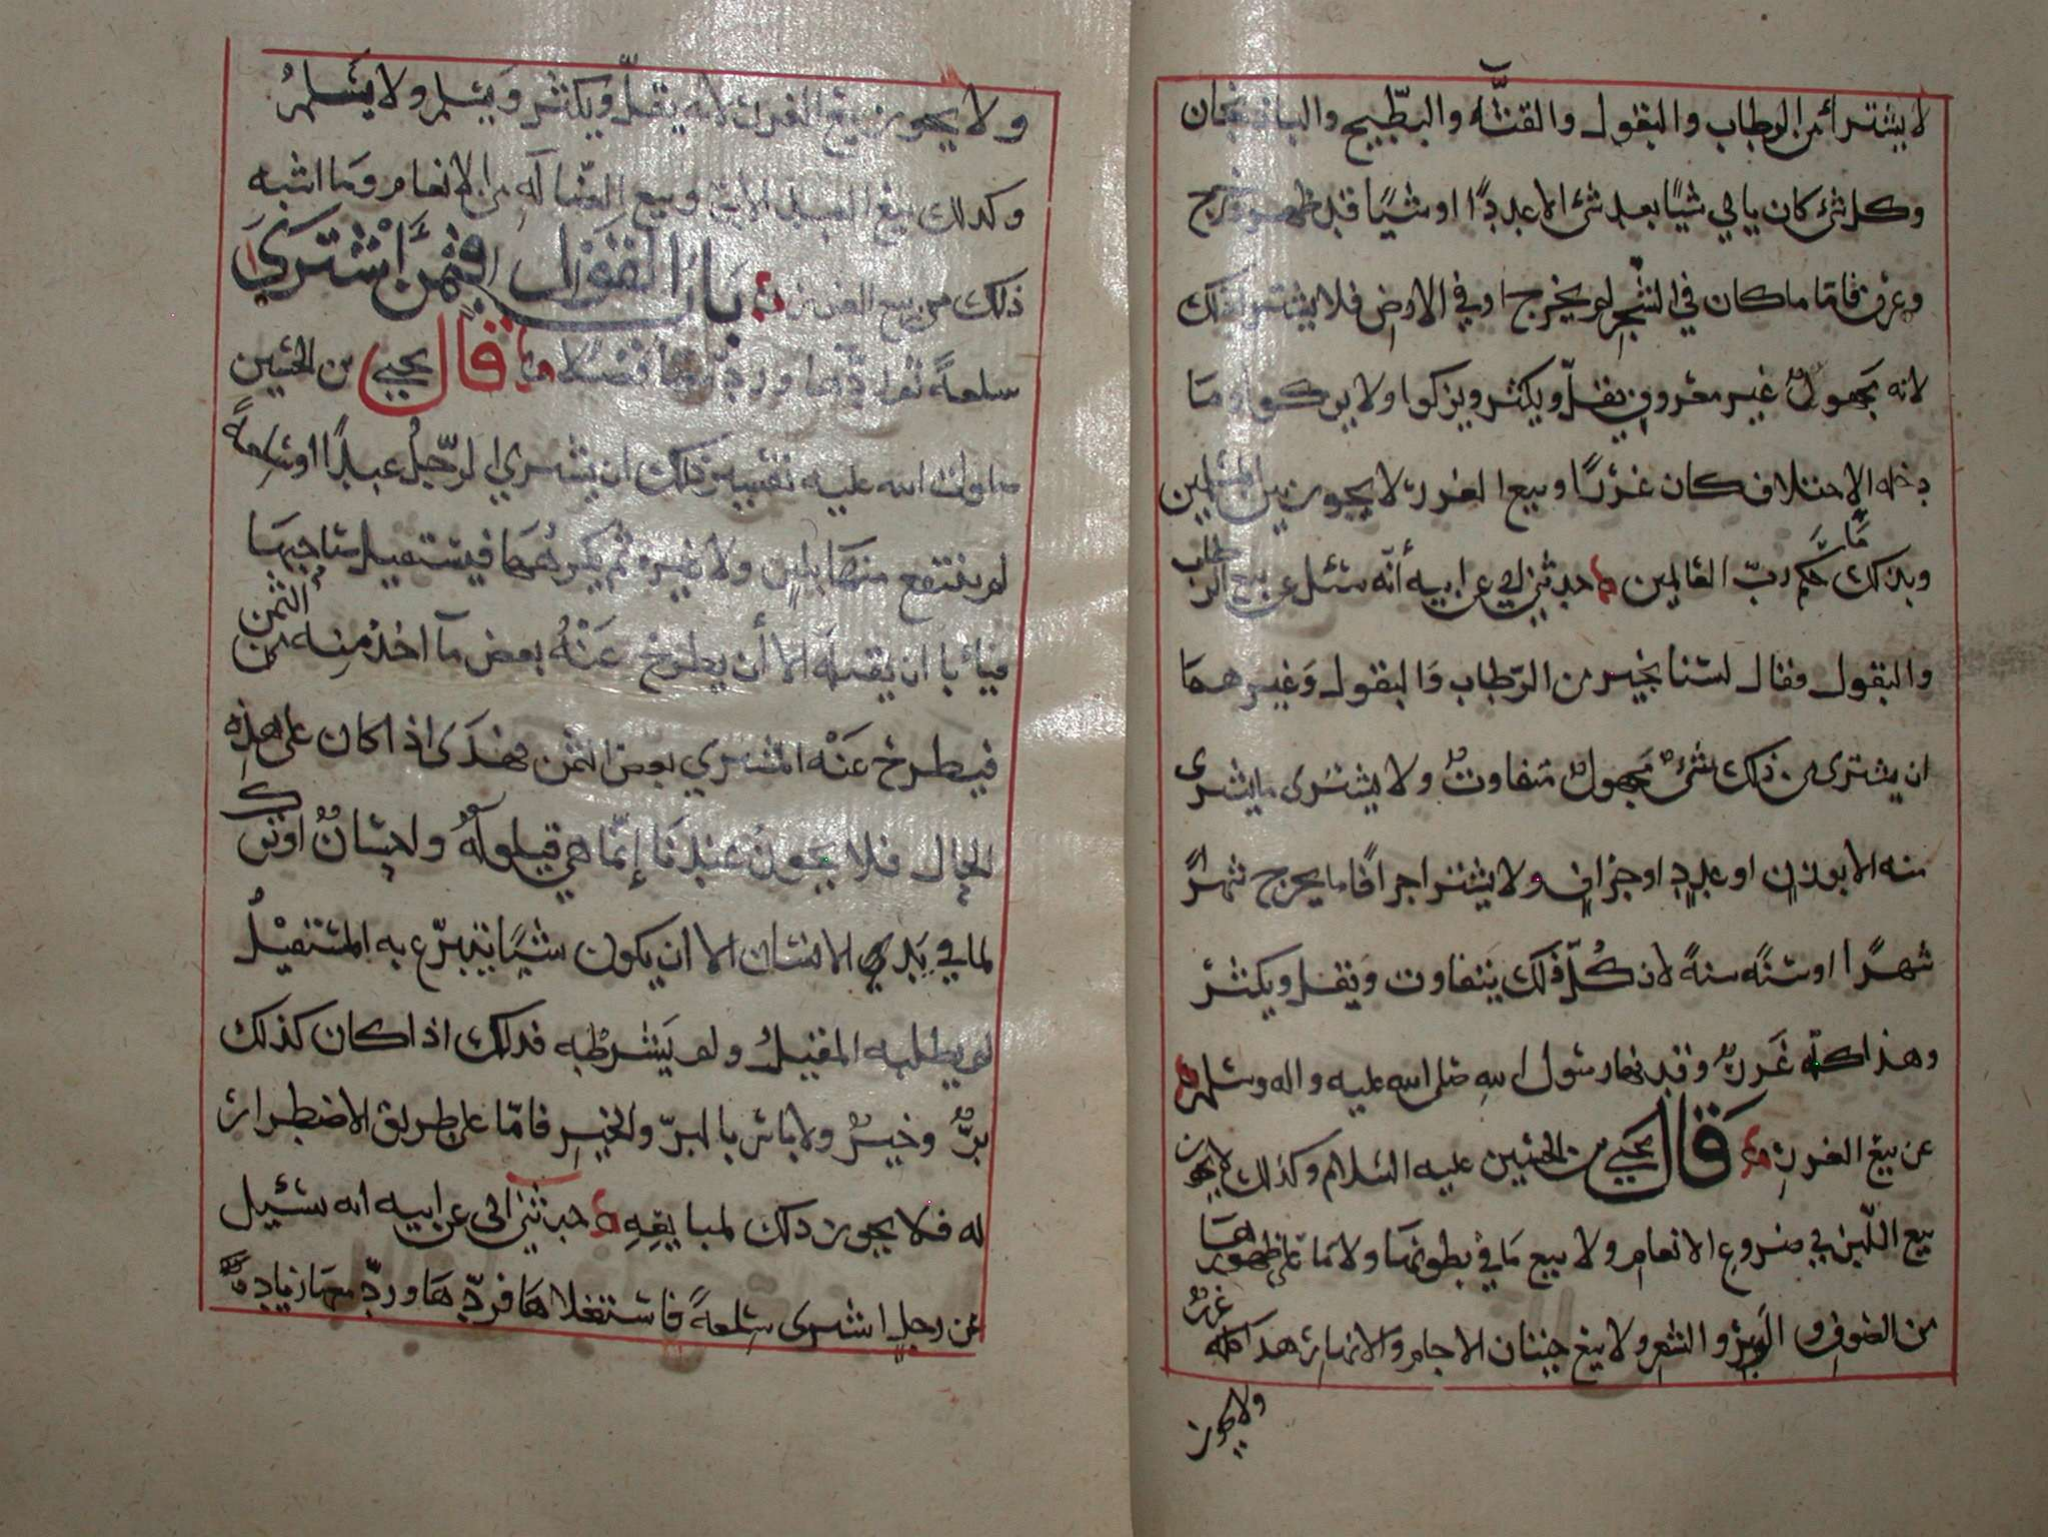 لا يشترا من الرطاب والبقول والقثّه والبطّيخ والباذنجان
وكل شئ كان ياتي شيًا بعد شئ الا عددًا او شيًا قد ظهر وخرج
وعرف فامّا ما كان في الشجر لم يخرج او في الارض فلا يشترا ذلك
لانه مجهولٌ غير معروفٍ يقلّ ويكثر ويزكوا ولا يزكوا وما
دخله الاختلاف كان غررًا وبيع الغرر لا يجوز بين المسلمين
وبذلك حكم ربّ العالمين حدثني ابي عن ابيه أنّه سئل عن بيع الرطاب
والبقول فقال لسنا نجيز من الرّطاب والبقول وغيرهما
ان يشترى من ذلك شئٌ مجهولٌ متفاوتٌ ولا يشترى ما يشترى
منه الا بوزنٍ او عددٍ او جزافٍ ولا يشترا جزافًا ما يخرج شهرًا
شهرًا او سنةً سنةً لان كُلّ ذلك يتفاوت ويقل ويكثر
وهذا كلّه غررٌ وقد نها رسول الله صلى الله عليه واله وسلم
عن بيع الغرر قال يحيى بن الحسين عليه السلام وكذلك لا يجوز
بيع اللّبن في ضروع الانعام ولا بيع ما في بطونها ولا ما على ظهورها
من الصوف والوبر والشعر ولا بيع حيتان الاجام والانهار هذا كله غررٌ
ولا يجوز
ولا يجوز بيع الغرر لانه يقلّ ويكثر ويسلم ولا يسلم
وكذلك بيع العبد الابق وبيع الضّاله من الانعام وما اشبه
ذلك من بيع الغرر بابُ القول فيمن اشترى
سلعةً ثم ردّها ورد معها فضلا قال يحيى بن الحسين
صلوات الله عليه تفسير ذلك ان يشتري الرّجلُ عبدًا او سلعةً
لم ينتفع منها بلبنٍ ولا غيره ثم يكرهها فيستقيل صاحبها
فيأبا ان يقيله الا أن يطرح عنهُ بعض ما اخذ منه من الثمن
فيطرح عنه المشتري بعض الثمن فهذى اذا كان على هذه
الحال فلا يجوز عندنا إنّما هي قيلولةٌ واحسانٌ او تركٌ
لما في يدي الانسان الا ان يكون شيًا تبرّع به المستقيلُ
لم يطلبه المقيل ولم يشرطه فذلك اذا كان كذلك
برٌّ وخيرٌ ولا باس بالبرّ والخير فامّا على طريق الاضطرار
له فلا يجوز ذلك لمبايعه حدثني ابي عن ابيه انه سئيل
عن رجلٍ اشترى سلعةً فاستغلاها فردّها وردّ معها زيادةً